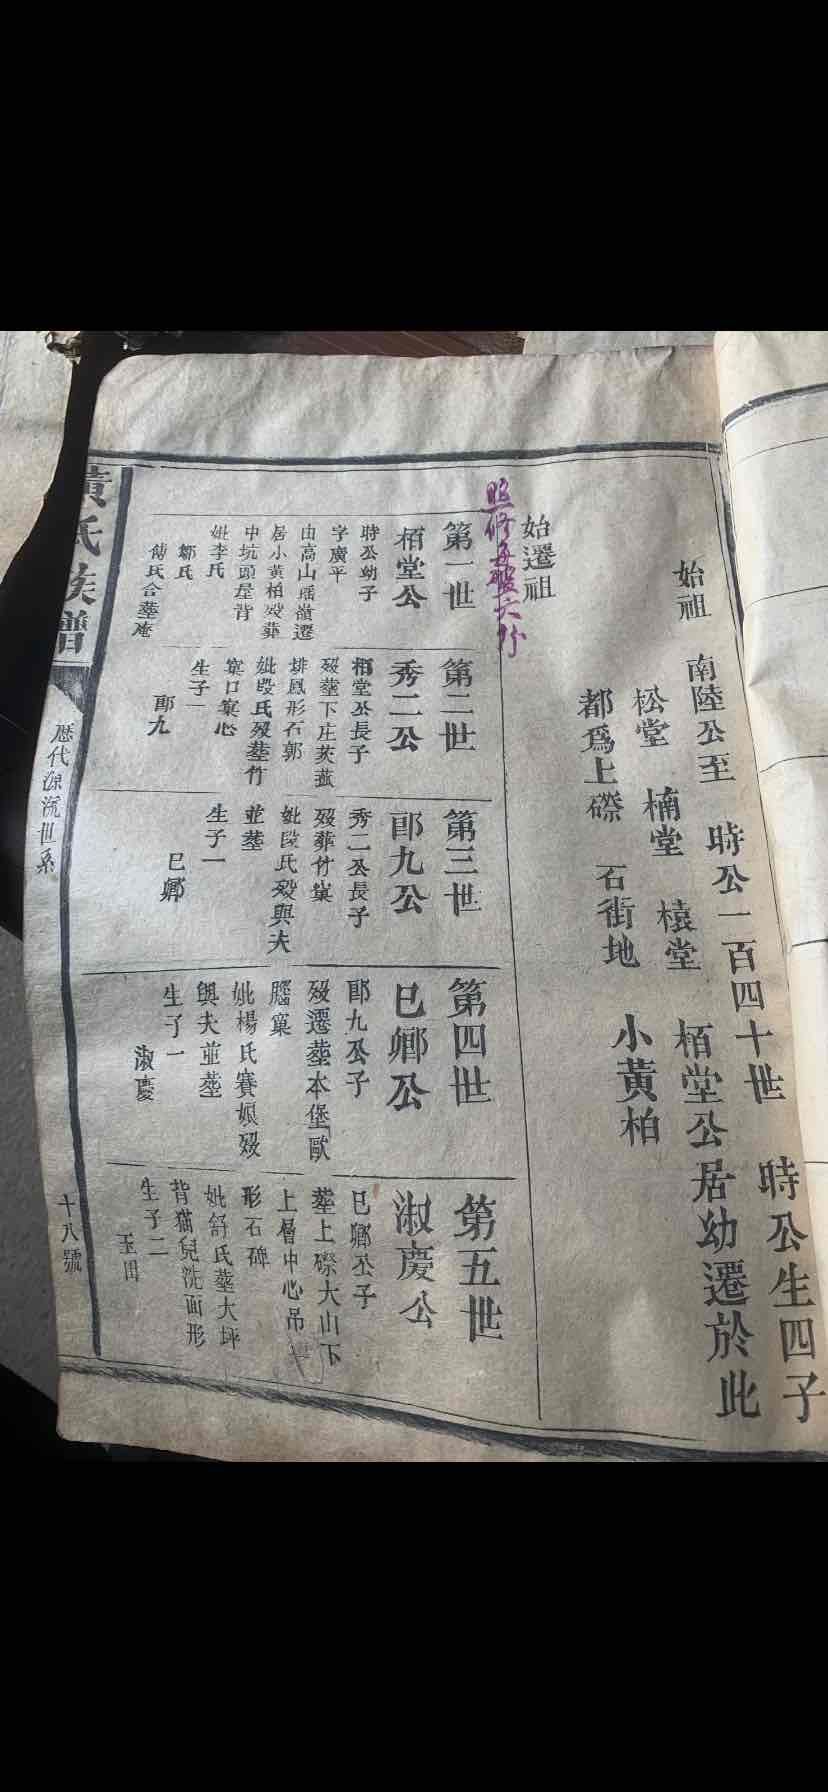 始祖
南陸公至 時公一百四十世 時公生四子
松堂 楠堂 榱堂 栢堂公居幼遷於此
都爲上磜 石街地 小黃柏
始遷祖
第一世
栢堂公
時公幼子
字廣平
由高山瑶嶺遷
居小黃柏歿葬
中坑頭屋背
妣李氏
鄒氏
傅氏合塟庵
第二世
秀二公
栢堂公長子
歿塟下庄茨菰
排鳳形石郭
妣段氏歿塟竹
窠口窠心
生子一
郎九
第三世
郎九公
秀二公長子
歿葬竹窠
妣段氏歿與夫
並塟
生子一
巳鄉
第四世
巳鄉公
郎九公子
歿遷塟本堡歐
腦窠
妣楊氏賽娘歿
與夫並塟
生子一
淑慶
第五世
淑慶公
巳鄉公子
塟上磜大山下
上層中心吊
形石碑
妣舒氏塟大坪
背猫兒洗面形
生子二
黃氏族譜
歷代源流世系
十八號